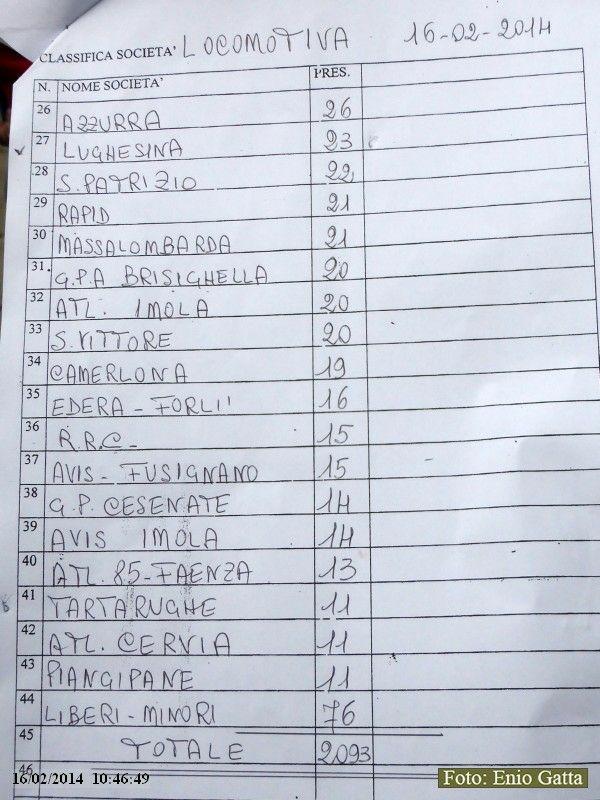 CLASSIFICA SOCIETA' LOCOMOTIVA 16-02-2014
N. NOME SOCIETA' PRES.
26 AZZURRA 26
27 LUGHESINA 23
28 S. PATRIZIO 22
29 RAPID 21
30 MASSALOMBARDA 21
31. G.P.A BRISIGHELLA 20
32 ATL. IMOLA 20
33 S. VITTORE 20
34 CAMERLONA 19
35 EDERA - FORLI' 16
36 R.R.C- 15
37 AVIS - FUSIGNANO 15
38 G.P. CESENATE 14
39 AVIS IMOLA 14
40 ATL. 85 - FAENZA 13
41 TARTARUGHE 11
42 ATL. CERVIA 11
43 PIANGIPANE 11
44 LIBERI - MINORI 76
45 TOTALE 2093
46
16/02/2014 10:46:49
Foto: Enio Gatta